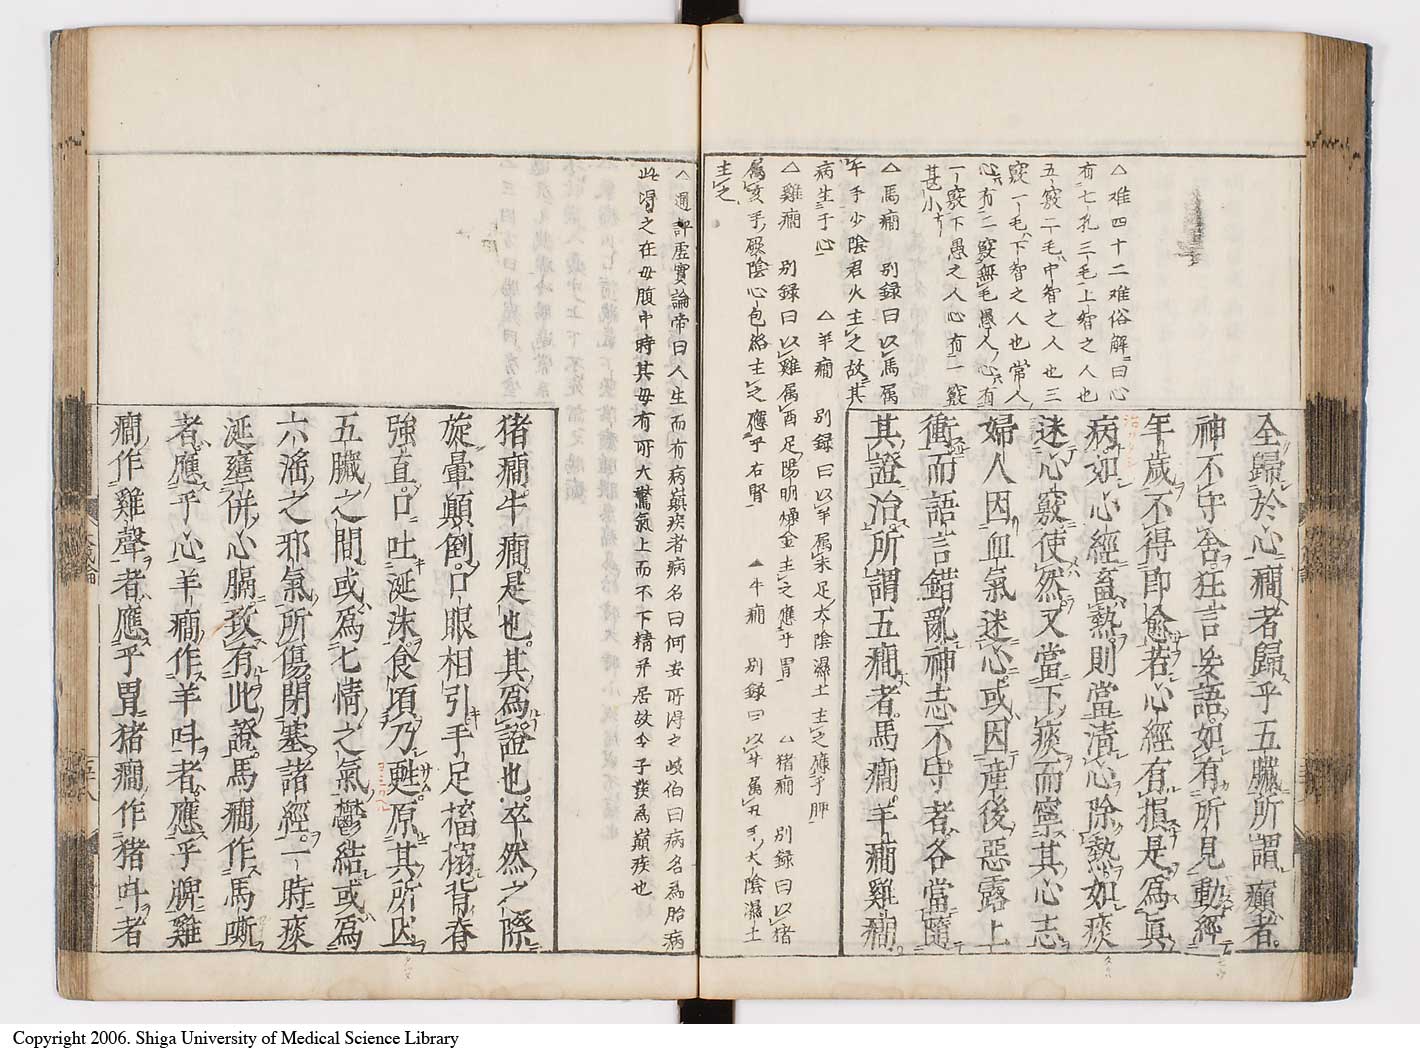 △难四十二难俗解曰心
有七孔三毛上智之人也
五竅二毛中智之人也三
竅一毛下智之人也常人
心有二竅無毛愚人心有
一竅下愚之人心有一竅
甚小
△馬癇 別録曰以馬属
午手少陰君火主之故其
病生于心 △羊癇 別録曰以羊属未足太陰濕土主之應乎脾
△雞癇 別録曰以雞属酉足陽明燥金主之應乎胃 △猪癇 別録曰以猪
属亥手厥陰心包絡主之應乎右腎 ▲牛癇 別録曰以牛属丑手太陰濕土
主之
全歸於心癇者歸乎五臟所謂癲者
神不守舍狂言妄語如有所見動經
年歲不得即愈若心經有損是為眞
病如心經畜熱則當清心除熱如痰
迷心竅使然又當下痰而寧其心志
婦人因血氣迷心或因産後惡露上
衝而語言錯亂神志不守者各當隨
其證治所謂五癇者馬癇羊癇雞癇
△通評虛實論帝曰人生而有病巔疾者病名曰何安所得之岐伯曰病名為胎病
此得之在母腹中時其母有所大驚氣上而不下精并居故令子發為巔疾也
猪癇牛癇是也其為證也卒然之際
旋暈顛倒口眼相引手足搐搦背脊
強直口吐涎沫食頃乃甦原其所因
五臟之間或為七情之氣鬱結或為
六淫之邪氣所傷閉塞諸經一時痰
涎壅併心膈致有此證馬癇作馬嘶
者應乎心羊癇作羊叫者應乎脾雞
癇作雞聲者應乎胃猪癇作猪叫者
Copyright 2006. Shiga University of Medical Science Library